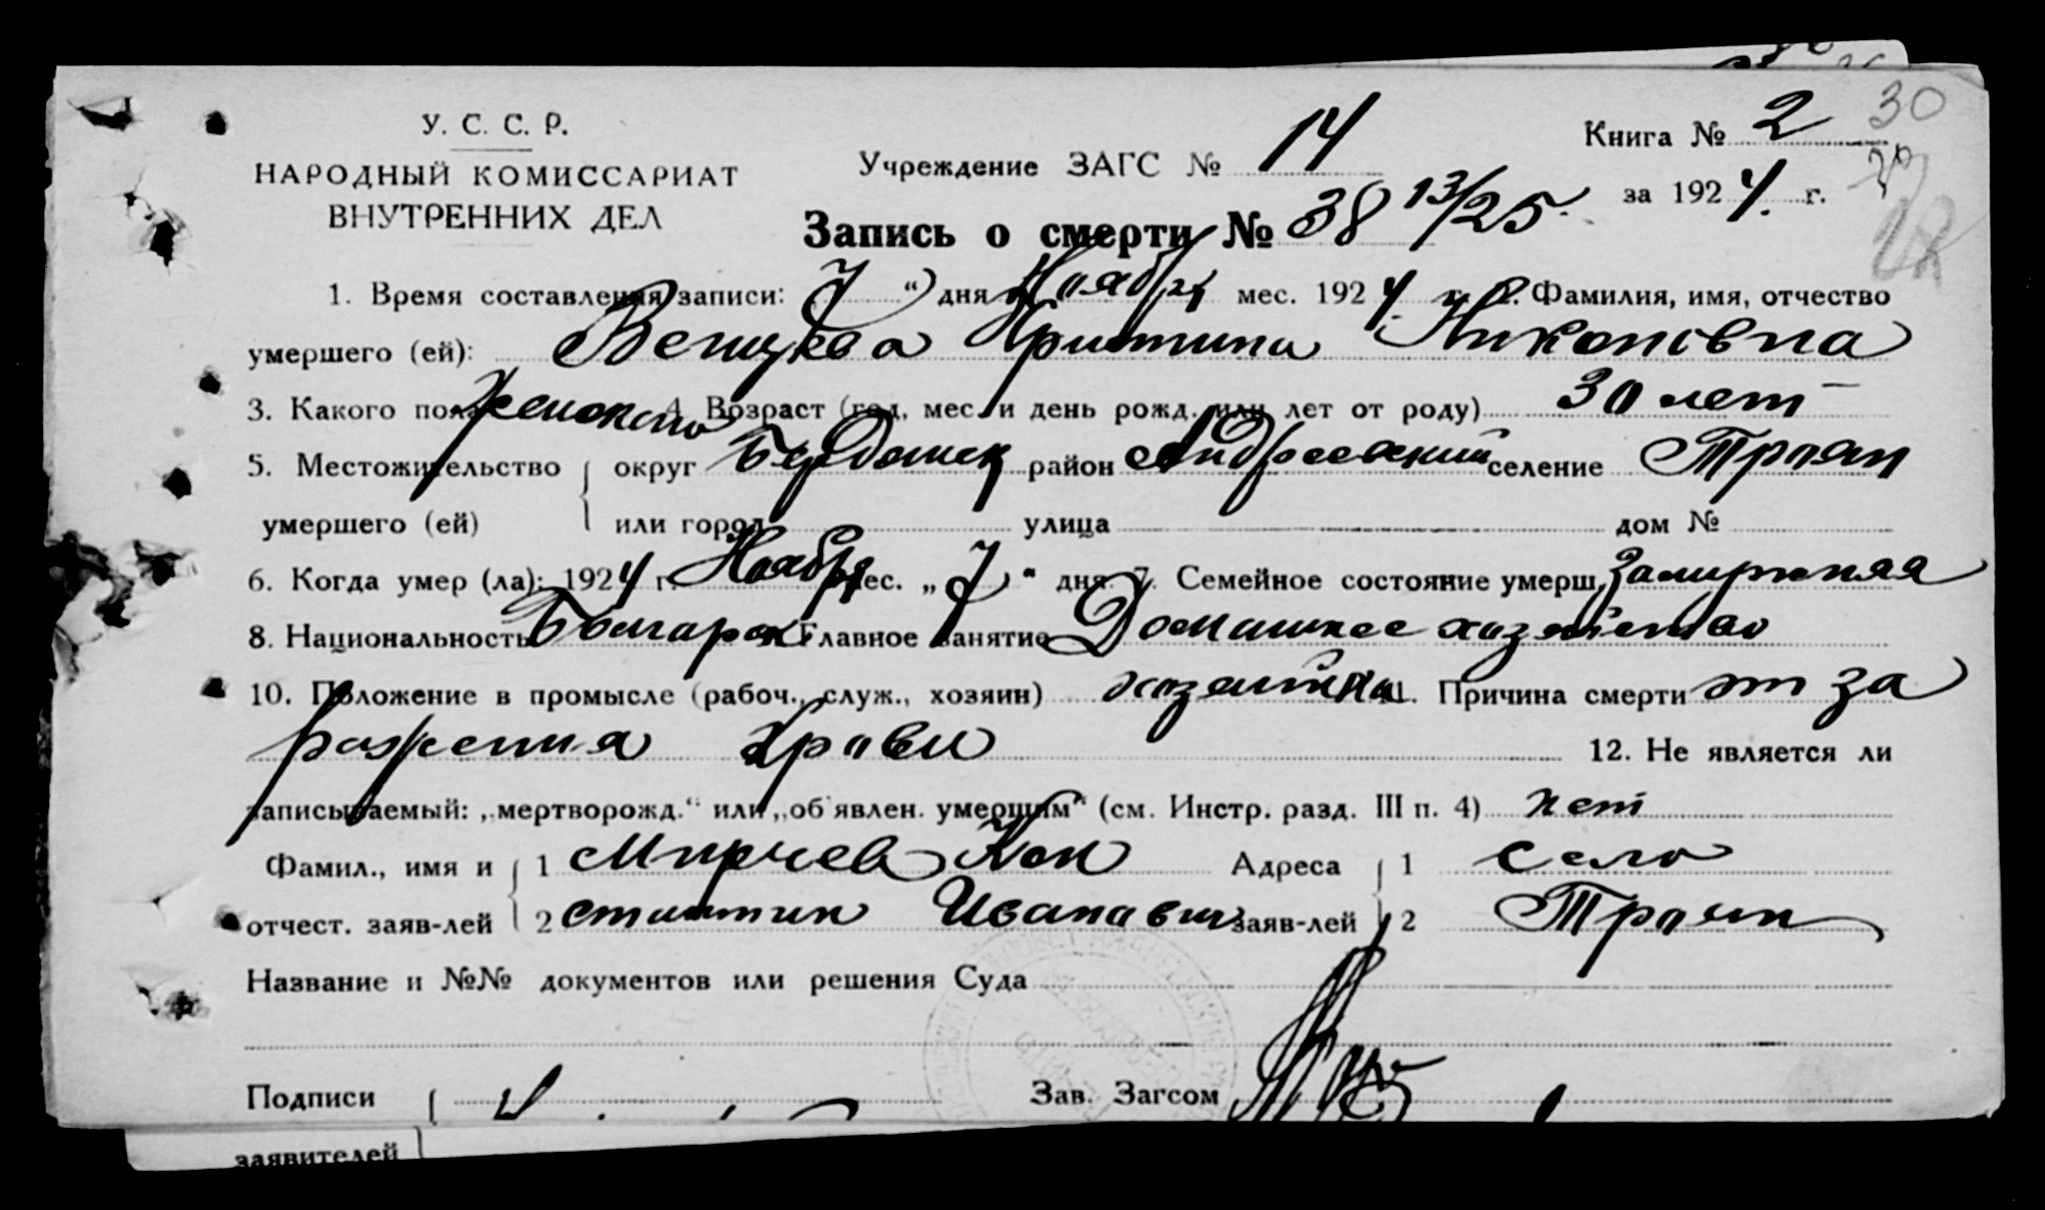 30
У. С. С. Р.
НАРОДНЫЙ КОМИССАРИАТ
ВНУТРЕННИХ ДЕЛ
Учреждение ЗАГС № 14
Книга № 2
за 1924 г.
Запись о смерти № 38 13/25
1. Время составления записи: „7“ дня Ноября мес. 1924 г. 2. Фамилия, имя, отчество
умершего (ей): Христина
3. Какого пола женского 4. Возраст (год, мес. и день рожд. или лет от роду) 30 лет
5. Местожительство округ район Андреевский селение Троян
умершего (ей) или город улица дом №
6. Когда умер (ла): 1924 г. Ноября мес. „7“ дня 7. Семейное состояние умерш. Замужняя
8. Национальность Болгарск Главное занятие Домашнее хозяйство
10. Положение в промысле (рабоч., служ., хозяин) хозяйка 11. Причина смерти от за
ражения крови 12. Не является ли
записываемый: „мертворожд.“ или „об'явлен. умершим“ (см. Инстр. разд. III п. 4) нет
Фамил., имя и 1 Мирчев Кон Адреса 1 село
отчест. заяв-лей 2 стантин Иванович заяв-лей 2 Троян
Название и №№ документов или решения Суда
Подписи Зав. Загсом
заявителей